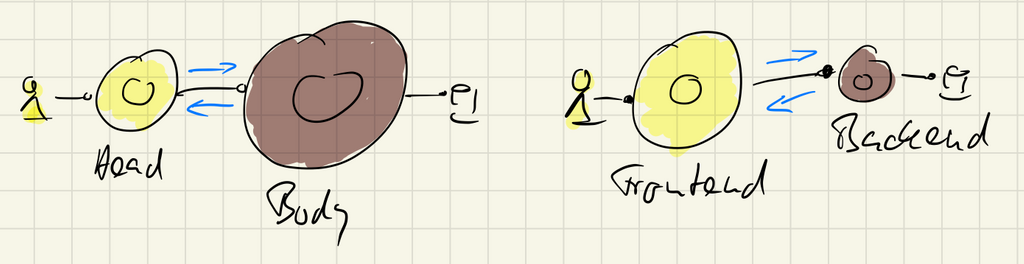 Head
Body
Frontend
Backend